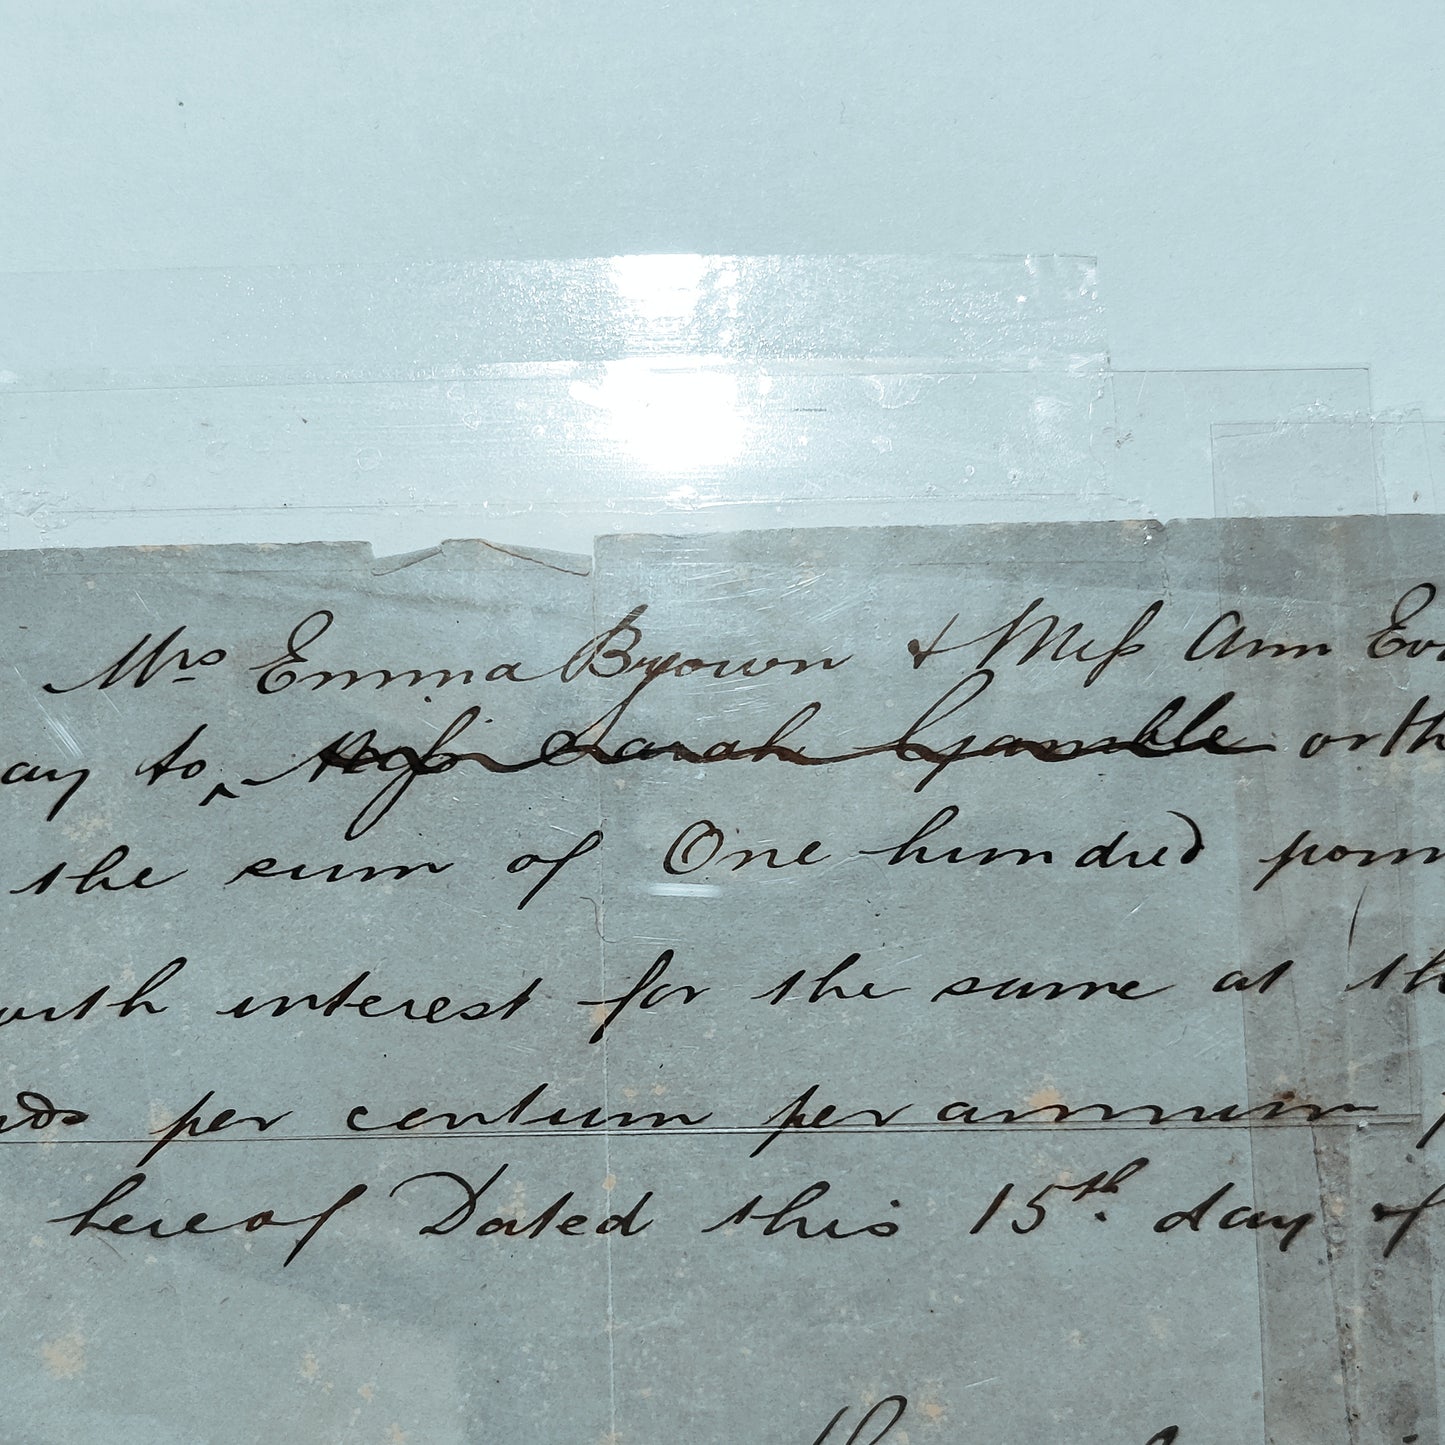 Mrs Emma Brown & Miss Ann
ay to ‸ Miss Sarah Gamble or th
the sum of One hundred poun
with interest for the same at th
nds per centum per annum
hereof Dated this 15th. day of